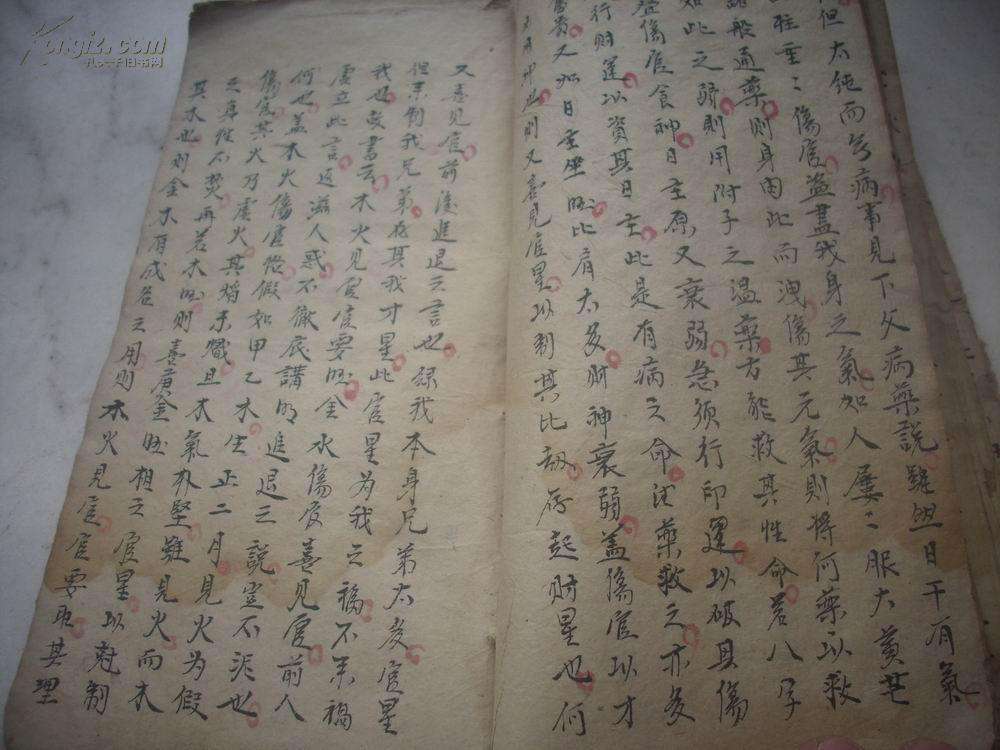 但太純而旡病事見下文病藥說雖然日干有氣
旺在重二傷官盜盡我身之氣如人屢二服大黃芒
諸般通藥則身因此而洩傷其元氣則將何藥以救
如此之弱則用附子之溫藥方能救其性命若八字
傷官食神日主原又衰弱急須行印運以破其傷
行財運以資其日主此是有病之命法藥救之亦多
貴又如日重坐旺比肩太多財神衰弱蓋傷官以才
則又喜見官星以制其比劫存起財星也何
又喜見官前後進退之言也緣我本身兄弟太多官星
但未制我兄弟存其我才星此官星為我之福不為禍
我也故書云木火見官官要旺金水傷官喜見官前人
虛立此言返滋人惑不徹底講明進退之說豈不泥也
何也蓋木火傷官俗假如甲乙木生正二月見火為假
傷官其火乃虛火其焰未熾且木氣朴堅雖見火而木
之身性不焚再若木旺則喜庚金旺相之官星以尅制
其木也則金木有成名之用則木火見官官要取其理
Kongfz.com
孔夫子旧书网